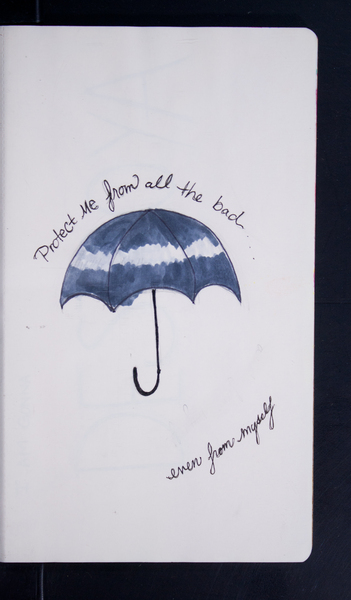 Protect Me from all the bad...
even from myself